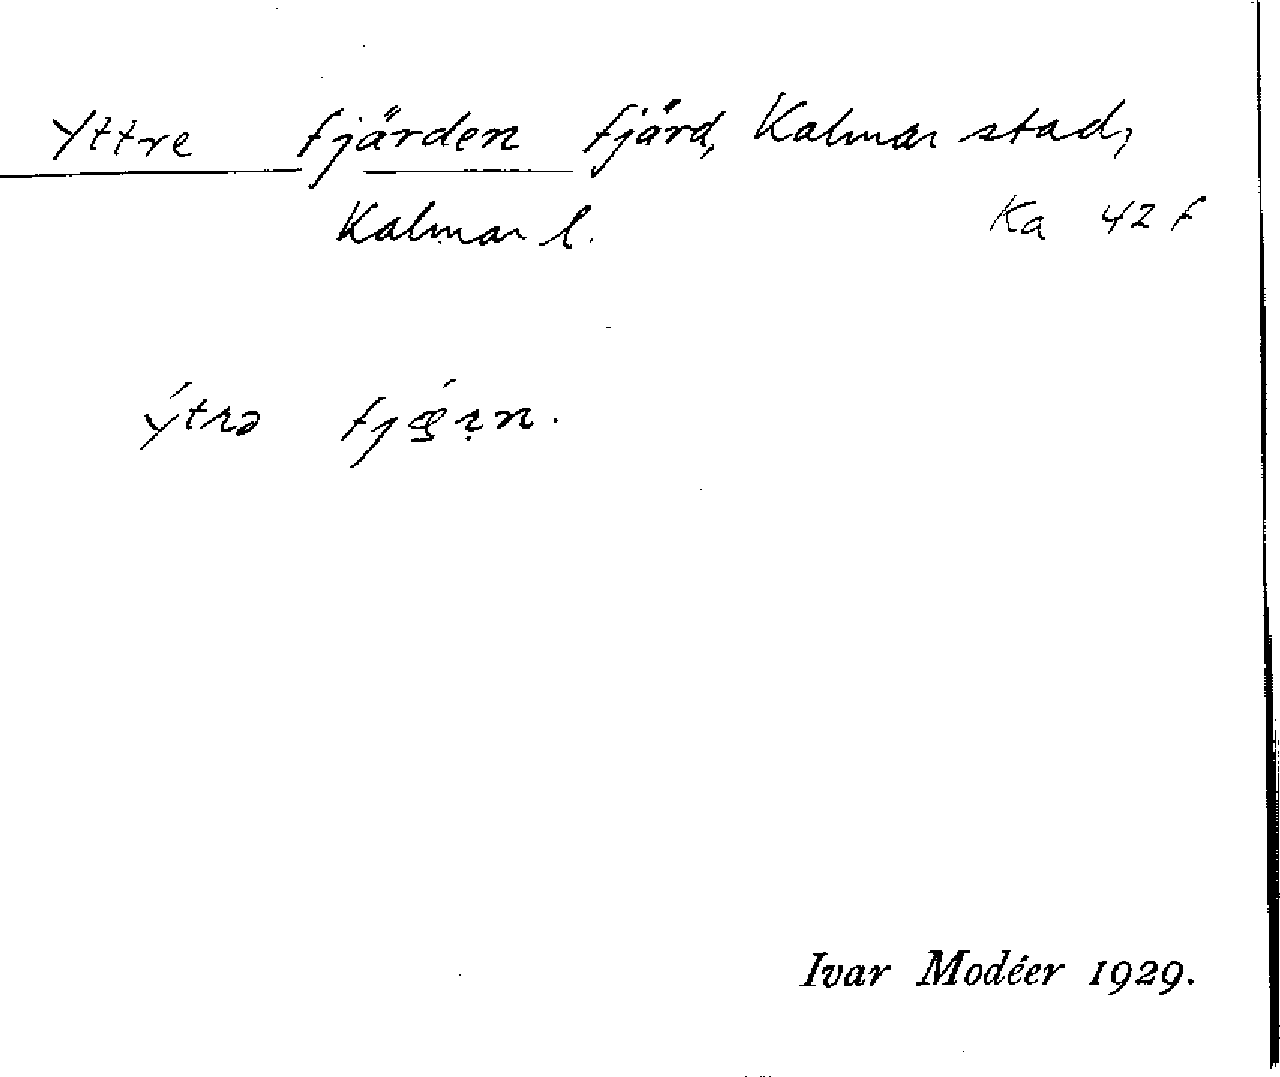 Yttre fjärden fjärd, Kalmar stad,
Kalmar l. Ka 42 f
ýtrə
Ivar Modéer 1929.